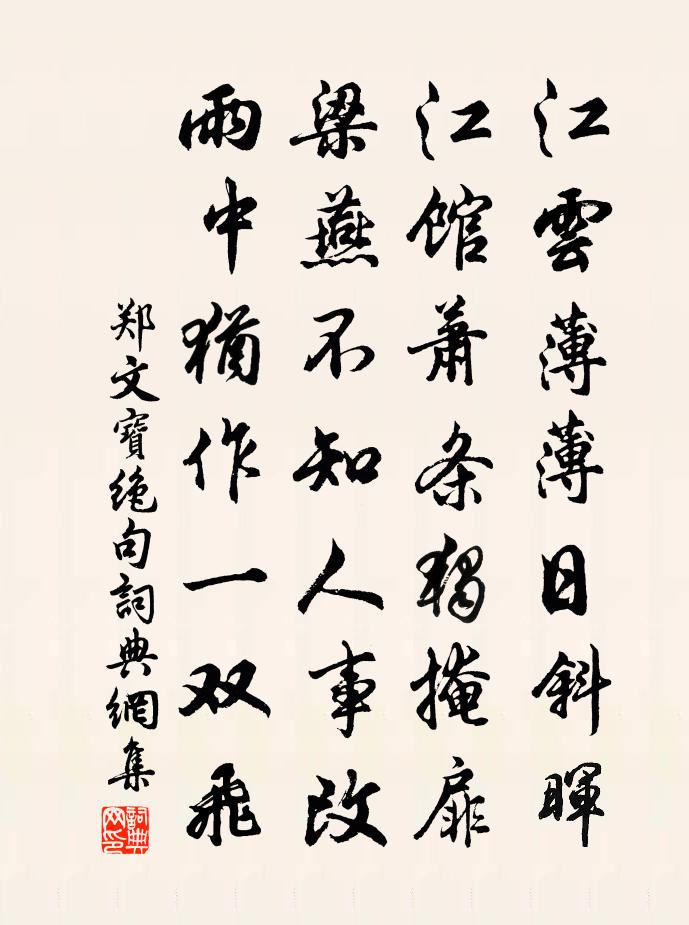 江雲薄薄日斜暉
江館蕭条獨掩扉
梁燕不知人事改
雨中猶作一双飛
郑文寶绝句詞典網集
詞典网印